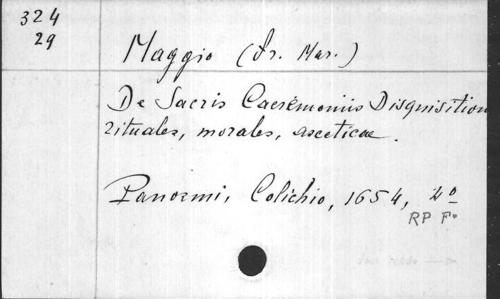 324
29
Maggio (Fr. Mar.)
De Sacris Caeremoniis Disquisition
rituales, morales, asceticae.
Panormi, Colichio, 1654, 4º
RP Fº